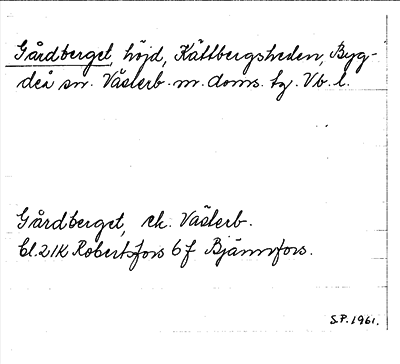 Gårdberget, höjd, Kättbergsheden, Byg-
deå sn. Västerb. m. doms. tg. Vb. l.
Gårdberget, ek. Västerb.
bl. 21K Robertsfors 6 f Bjännfors.
S.P. 1961.